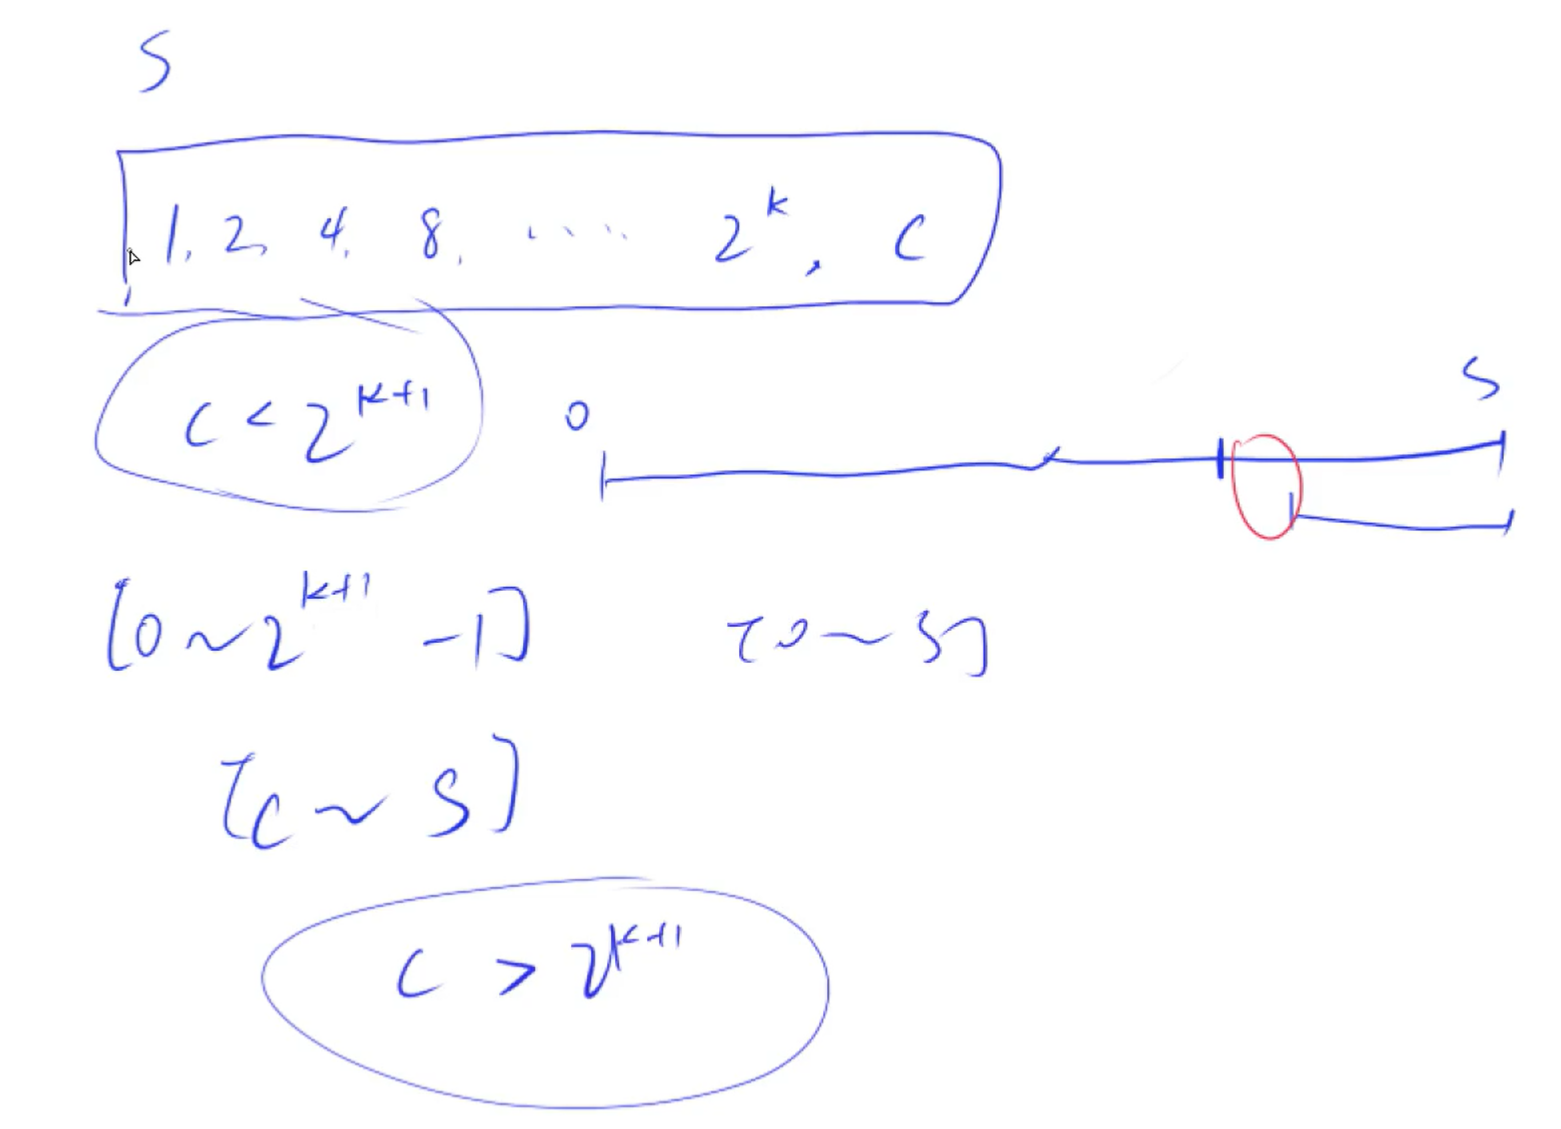 S
1, 2, 4, 8, ..... 2^k, C
C < 2^{k+1}
0
S
[0 ~ 2^{k+1} -1]
[0 ~ S]
[C ~ S]
C > 2^{k+1}